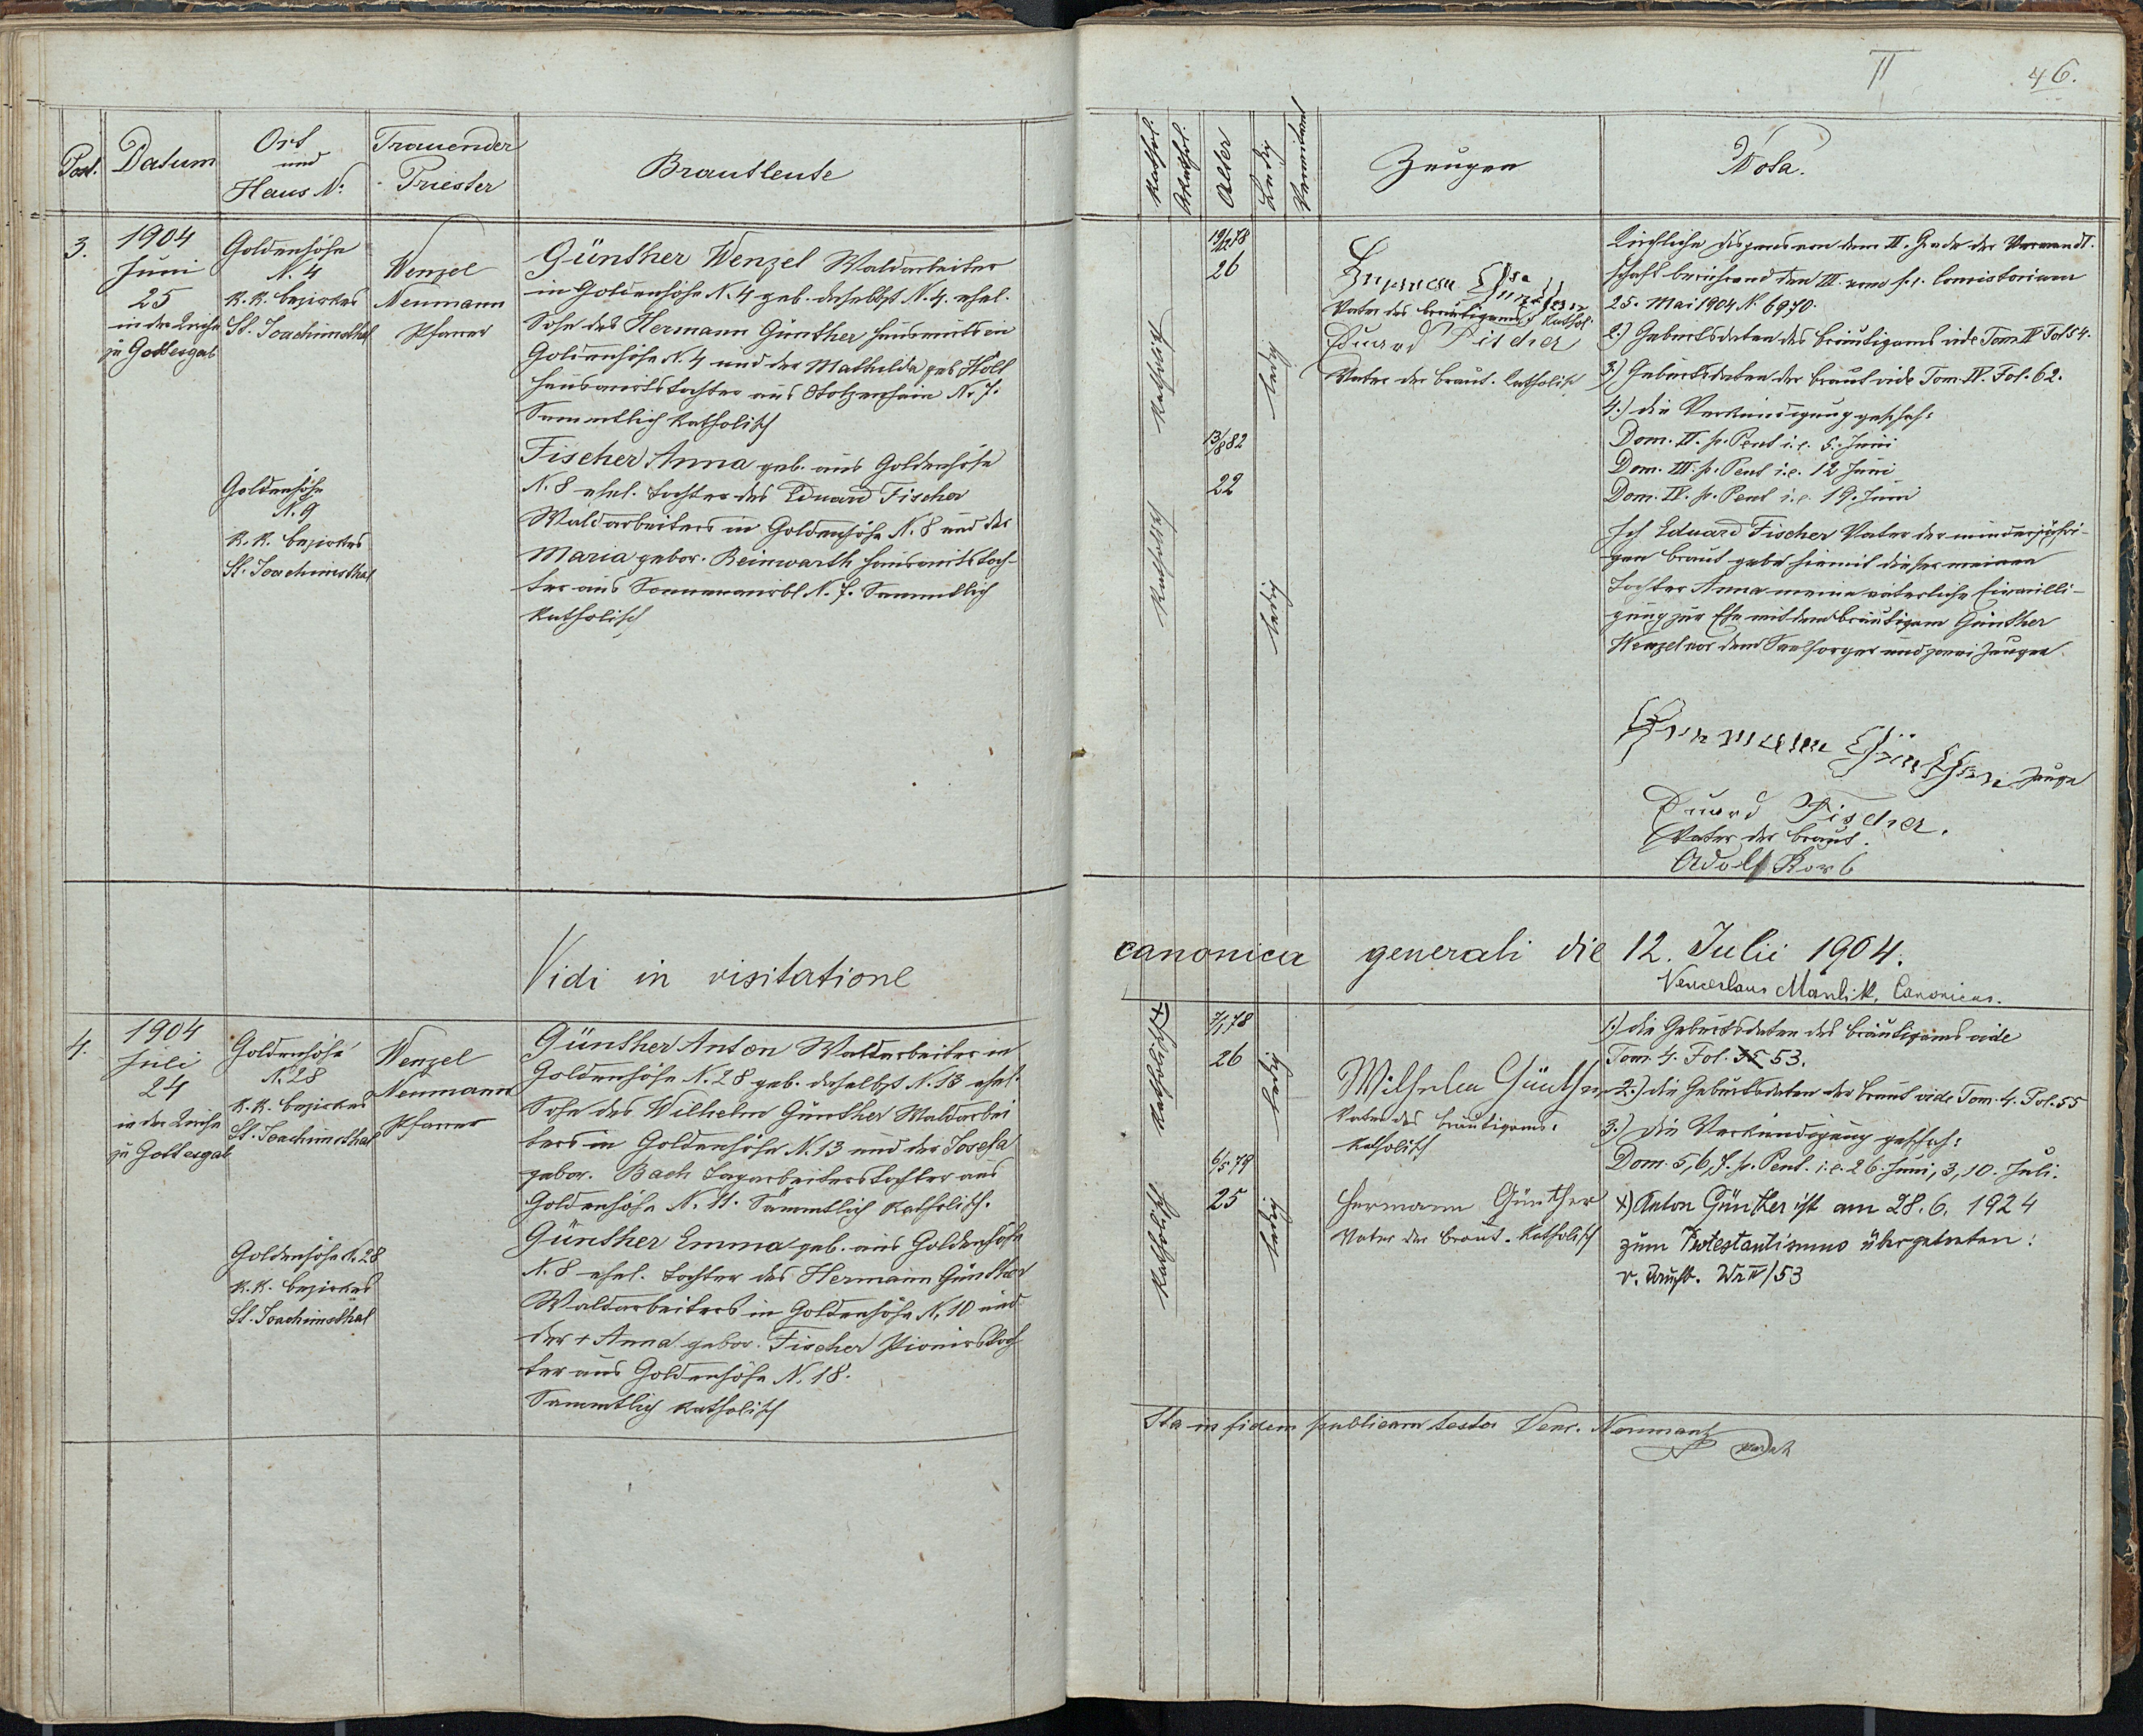 II
46.
Post.
Datum
Ort
und
Haus N:
Trauender
Priester
Brautleute
Kathol.
Akathol.
Alter
Ledig
Verwitwet
Zeugen
Nota.
3.
1904
Juni
25
in der Kirche
zu Gottesgab
Goldenhöhe
N. 4
k. k. Bezirkes
St. Joachimsthal
Wenzel
Neumann
Pfarrer
Günther Wenzel Waldarbeiter
in Goldenhöhe N. 4 geb. daselbst N. 4. ehel.
Sohn des Hermann Günther Hauswirts in
Goldenhöhe N. 4 und der Mathilda geb.
Hauswirtstochter aus Stolzenhain N. 7.
Sammtlich Katholisch
Goldenhöhe
N. 9
k. k. Bezirkes
St. Joachimsthal
Fischer Anna geb. aus Goldenhöhe
N. 8 ehel. Tochter des Eduard Fischer
Waldarbeiters in Goldenhöhe N. 8 und der
Maria gebor. Reinwarth Hauswirtstoch-
ter aus Sonnenwirbl N. 7. Sammtlich
Katholisch
19/12 78
26
Katholisch
ledig
13/8 82
22
Katholisch
ledig
Hermann Günther
Vater des Bräutigams. Kathol.
Eduard Fischer
Vater der Braut. Katholisch
Kirchliche Dispens von dem II. Grade der Verwandt-
schaft berührend den III. vom f. e. Consistorium
25. Mai 1904 N 6970.
2.) Geburtsdaten des Bräutigams vide Tom IV Fol 54.
3.) Geburtsdaten der Braut vide Tom. IV. Fol. 62.
4.) die Verkündigung geschah:
Dom. II. p. Pent i. e. 5. Juni
Dom. III. p. Pent i. e. 12 Juni
Dom. IV. p. Pent i. e. 19. Juni
Ich Eduard Fischer Vater der minderjähri-
gen Braut gebe hiemit dieser meiner
Tochter Anna meine väterliche Einwilli-
gung zur Ehe mit dem Bräutigam Günther
Wenzel vor dem Seelsorger und zwei Zeugen
Hermann Günther Zeuge
Eduard Fischer.
Vater der Braut.
Adolf Korb
Vidi in visitatione canonica generali die 12. Julii 1904.
Venceslaus Canonicus.
4.
1904
Juli
24
in der Kirche
zu Gottesgab
Goldenhöhe
N. 28
k. k. Bezirkes
St. Joachimsthal
Wenzel
Neumann
Pfarrer
Günther Anton Waldarbeiter in
Goldenhöhe N. 28 geb. daselbst N. 13 ehel.
Sohn des Wilhelm Günther Waldarbei
ters in Goldenhöhe N. 13 und der Josefa
gebor. Bach Tagarbeiterstochter aus
Goldenhöhe N. 11. Sämmtlich Katholisch.
Goldenhöhe N. 28
k. k. Bezirkes
St. Joachimsthal
Günther Emma geb. aus Goldenhöhe
N. 8 ehel. Tochter des Hermann Günther
Waldarbeiters in Goldenhöhe N. 10 und
der + Anna gebor. Fischer
ter aus Goldenhöhe N. 18.
Sammtlich Katholisch
7/1 78
26
Katholisch +)
ledig
6/5 79
25
Katholisch
ledig
Wilhelm Günther
Vater des Bräutigams.
Katholisch
Hermann Günther
Vater der Braut. Katholisch
1.) die Geburtsdaten des Bräutigams vide
Tom. 4. Fol. 53.
2.) die Geburtsdaten der Braut vide Tom. 4. Fol. 55
3.) die Verkündigung geschah:
Dom. 5, 6, 7. p. Pent. i. e. 26. Juni, 3, 10. Juli.
+) Anton Günther ist am 28. 6. 1924
zum Protestantismus übergetreten:
IV/53
Ita in fidem publicam testor Venc. Neumann